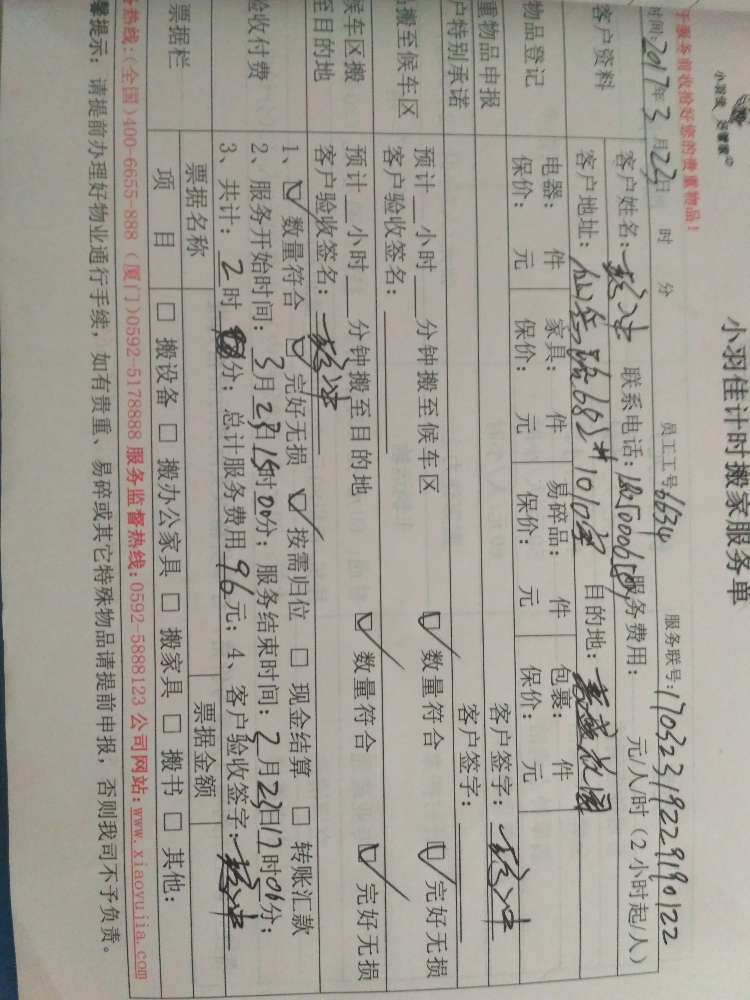 小羽佳 好管家
小羽佳计时搬家服务单
于服务前收拾好您的贵重物品!
时间:2017年3月23日 时 分 员工工号6634 服务联号:17032319229190122
客户资料
客户姓名: 联系电话: 服务费用: 元/人/时(2小时起/人)
客户地址: 682#1010室 目的地:蔷薇花园
物品登记
电器: 件 家具: 件 易碎品: 件 包裹: 件
保价: 元 保价: 元 保价: 元 保价: 元
重物品申报 客户签字:
户特别承诺 客户签字:
搬至候车区
预计 小时 分钟搬至候车区 数量符合 完好无损
客户验收签名:
候车区搬
至目的地
预计 小时 分钟搬至目的地 数量符合 完好无损
客户验收签名:
验收付费
1、 数量符合 完好无损 按需归位 现金结算 转账汇款
2、服务开始时间:3月23日15时00分;服务结束时间:3月23日17时06分;
3、共计:2时 分;总计服务费用96元;4、客户验收签字:
票据栏
票据名称 票据金额
项 目 搬设备 搬办公家具 搬家具 搬书 其他:
务热线:(全国)400-6655-888(厦门)0592-5178888 服务监督热线:0592-5888123 公司网站:www.xiaoyujia.com
馨提示:请提前办理好物业通行手续,如有贵重、易碎或其它特殊物品请提前申报,否则我司不予负责。